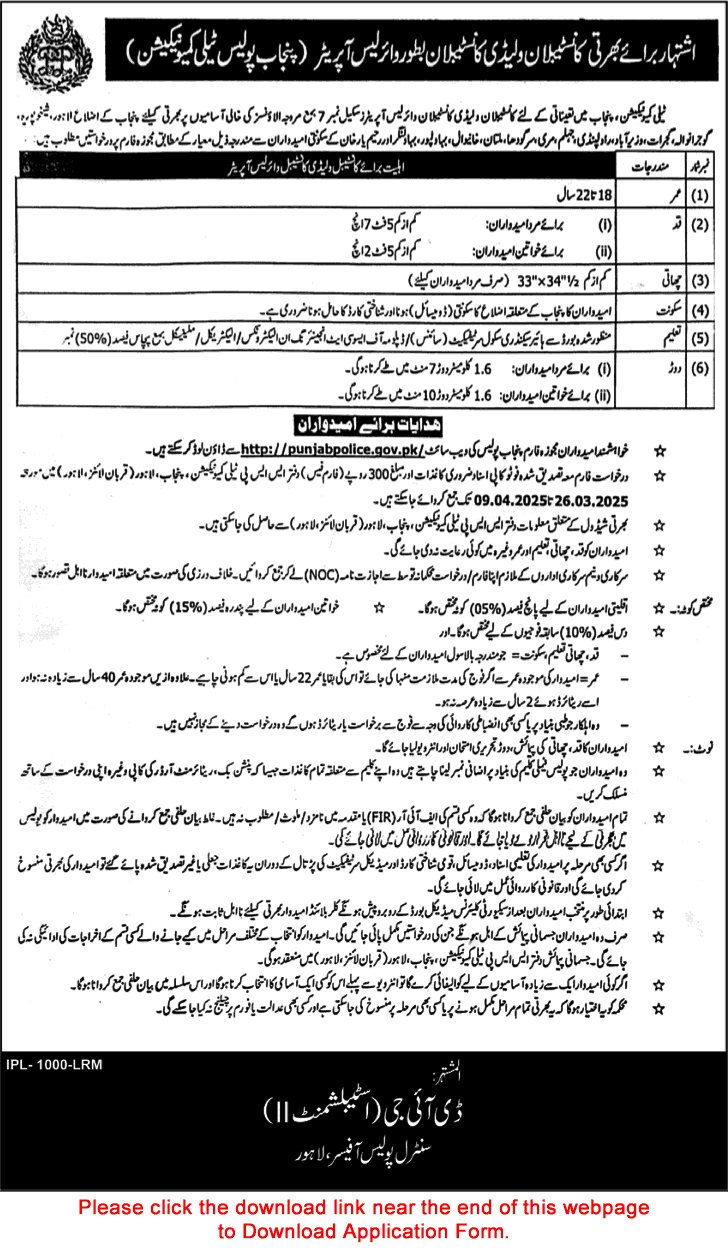 اشتہار برائے بھرتی کانسٹیبلان ولیڈی کانسٹیبلان بطور وائرلیس آپریٹر (پنجاب پولیس ٹیلی کمیونیکیشن)
ٹیلی کمیونیکیشن، پنجاب میں تعیناتی کے لئے کانسٹیبلان ولیڈی کانسٹیبلان وائرلیس آپریٹرز سکیل نمبر 7 بمع مروجہ الاؤنسز کی خالی آسامیوں پر بھرتی کیلئے پنجاب کے اضلاع لاہور، شیخوپورہ،
گوجرانوالہ، گجرات، وزیرآباد، راولپنڈی، جہلم، مری، سرگودھا، ملتان، خانیوال، بہاولپور، بہاولنگر اور رحیم یار خان کے سکونتی امیدواران سے مندرجہ ذیل معیار کے مطابق مجوزہ فارم پر درخواستیں مطلوب ہیں:
نمبر شمار مندرجات اہلیت برائے کانسٹیبل ولیڈی کانسٹیبل وائرلیس آپریٹر
(1) عمر 18 تا 22 سال
(2) قد (i) برائے مرد امیدواران: کم از کم 5 فٹ 7 انچ
(ii) برائے خواتین امیدواران: کم از کم 5 فٹ 2 انچ
(3) چھاتی کم از کم 33"×34½" (صرف مرد امیدواران کیلئے)
(4) سکونت امیدواران کا پنجاب کے متعلقہ اضلاع کا سکونتی (ڈومیسائل) ہونا اور شناختی کارڈ کا حامل ہونا ضروری ہے۔
(5) تعلیم منظور شدہ بورڈ سے ہائیر سیکنڈری سکول سرٹیفکیٹ (سائنس)/ ڈپلومہ آف ایسوسی ایٹ انجینئرنگ ان الیکٹرونکس/ الیکٹریکل/ مکینیکل بمع پچاس فیصد (50%) نمبر
(6) دوڑ (i) برائے مرد امیدواران: 1.6 کلومیٹر دوڑ 7 منٹ میں طے کرنا ہوگی۔
(ii) برائے خواتین امیدواران: 1.6 کلومیٹر دوڑ 10 منٹ میں طے کرنا ہوگی۔
ھدایات برائے امیدواران
☆ خواہشمند امیدواران مجوزہ فارم پنجاب پولیس کی ویب سائٹ http://punjabpolice.gov.pk/ سے ڈاؤن لوڈ کر سکتے ہیں۔
☆ درخواست فارم معہ تصدیق شدہ فوٹو کاپی اسناد ضروری کاغذات اور مبلغ 300 روپے (فارم فیس) دفتر ایس ایس پی ٹیلی کمیونیکیشن، پنجاب، لاہور (قربان لائنز، لاہور) میں مورخہ
26.03.2025 تا 09.04.2025 تک جمع کروائے جاسکتے ہیں۔
☆ بھرتی شیڈول کے متعلق معلومات دفتر ایس ایس پی ٹیلی کمیونیکیشن، پنجاب، لاہور (قربان لائنز، لاہور) سے حاصل کی جاسکتی ہیں۔
☆ امیدواران کو قد، چھاتی، تعلیم اور عمر وغیرہ میں کوئی رعایت نہ دی جائے گی۔
☆ سرکاری و نیم سرکاری اداروں کے ملازم اپنا فارم/ درخواست محکمانہ توسط سے اجازت نامہ (NOC) لے کر جمع کروائیں۔ خلاف ورزی کی صورت میں متعلقہ امیدوار نااہل تصور ہوگا۔
مختص کوٹہ:۔ ☆ اقلیتی امیدواران کے لیے پانچ فیصد (05%) کوٹہ مختص ہوگا۔ ☆ خواتین امیدواران کے لیے پندرہ فیصد (15%) کوٹہ مختص ہوگا۔
☆ دس فیصد (10%) سابقہ فوجیوں کے لیے مختص ہوگا۔ اور
– قد، چھاتی تعلیم، سکونت = جو مندرجہ بالا سول امیدواران کے لئے مخصوص ہے۔
– عمر = امیدوار کی موجودہ عمر سے اگر فوج کی مدت ملازمت منہا کی جائے تو اس کی بقایا عمر 22 سال یا اس سے کم ہونی چاہیے۔ علاوہ ازیں موجودہ عمر 40 سال سے زیادہ نہ ہو اور
اسے ریٹائرڈ ہوئے 2 سال سے زیادہ عرصہ نہ ہو۔
– وہ اہلکار جو طبی بنیاد پر یا کسی بھی انضباطی کاروائی کی وجہ سے فوج سے برخاست یا ریٹائرڈ ہوں گے وہ درخواست دینے کے مجاز نہیں ہیں۔
نوٹ:۔ ☆ امیدواران کا قد، چھاتی کی پیمائش، دوڑ تحریری امتحان اور انٹرویو لیا جائے گا۔
☆ وہ امیدواران جو پولیس فیملی کلیم کی بنیاد پر اضافی نمبر لینا چاہتے ہیں وہ اپنے کلیم سے متعلقہ تمام کاغذات جیسا کہ پنشن بک، ریٹائرمنٹ آرڈر کی کاپی وغیرہ اپنی درخواست کے ساتھ
منسلک کریں۔
☆ تمام امیدواران کو بیان حلفی جمع کروانا ہوگا کہ وہ کسی قسم کی ایف آئی آر (FIR) یا مقدمہ میں نامزد/ ملوث/ مطلوب نہ ہیں۔ غلط بیان حلفی جمع کروانے کی صورت میں امیدوار کو پولیس
میں بھرتی کے لیے نااہل قرار دے دیا جائے گا۔ اور قانونی کارروائی عمل میں لائی جائے گی۔
☆ اگر کسی بھی مرحلہ پر امیدوار کی تعلیمی اسناد، ڈومیسائل، قومی شناختی کارڈ اور میڈیکل سرٹیفکیٹ کی پڑتال کے دوران یہ کاغذات جعلی یا غیر تصدیق شدہ پائے گئے تو امیدوار کی بھرتی منسوخ
کر دی جائے گی اور قانونی کارروائی عمل میں لائی جائے گی۔
☆ ابتدائی طور پر منتخب امیدواران بعد از سیکورٹی کلیئرنس میڈیکل بورڈ کے روبرو پیش ہونگے کلر بلائنڈ امیدوار بھرتی کیلئے نااہل ثابت ہونگے۔
☆ صرف وہ امیدواران جسمانی پیمائش کے اہل ہونگے جن کی درخواستیں مکمل پائی جائیں گی۔ امیدوار کو انتخاب کے مختلف مراحل میں کیے جانے والے کسی قسم کے اخراجات کی ادائیگی نہ کی
جائے گی۔ جسمانی پیمائش دفتر ایس ایس پی ٹیلی کمیونیکیشن، پنجاب، لاہور (قربان لائنز، لاہور) میں منعقد ہوگی۔
☆ اگر کوئی امیدوار ایک سے زیادہ آسامیوں کے لیے کوالیفائی کرے گا تو انٹرویو سے پہلے اس کو کسی ایک آسامی کا انتخاب کرنا ہوگا اور اس سلسلہ میں بیان حلفی جمع کروانا ہوگا۔
☆ محکمہ کو یہ اختیار ہوگا کہ یہ بھرتی تمام مراحل مکمل ہونے پر یا کسی بھی مرحلہ پر منسوخ کی جاسکتی ہے اور کسی بھی عدالت یا فورم پر چیلنج نہ کیا جاسکے گی۔
IPL- 1000-LRM
المشتہر:
ڈی آئی جی (اسٹیبلشمنٹ II)
سنٹرل پولیس آفیسر، لاہور
Please click the download link near the end of this webpage
to Download Application Form.